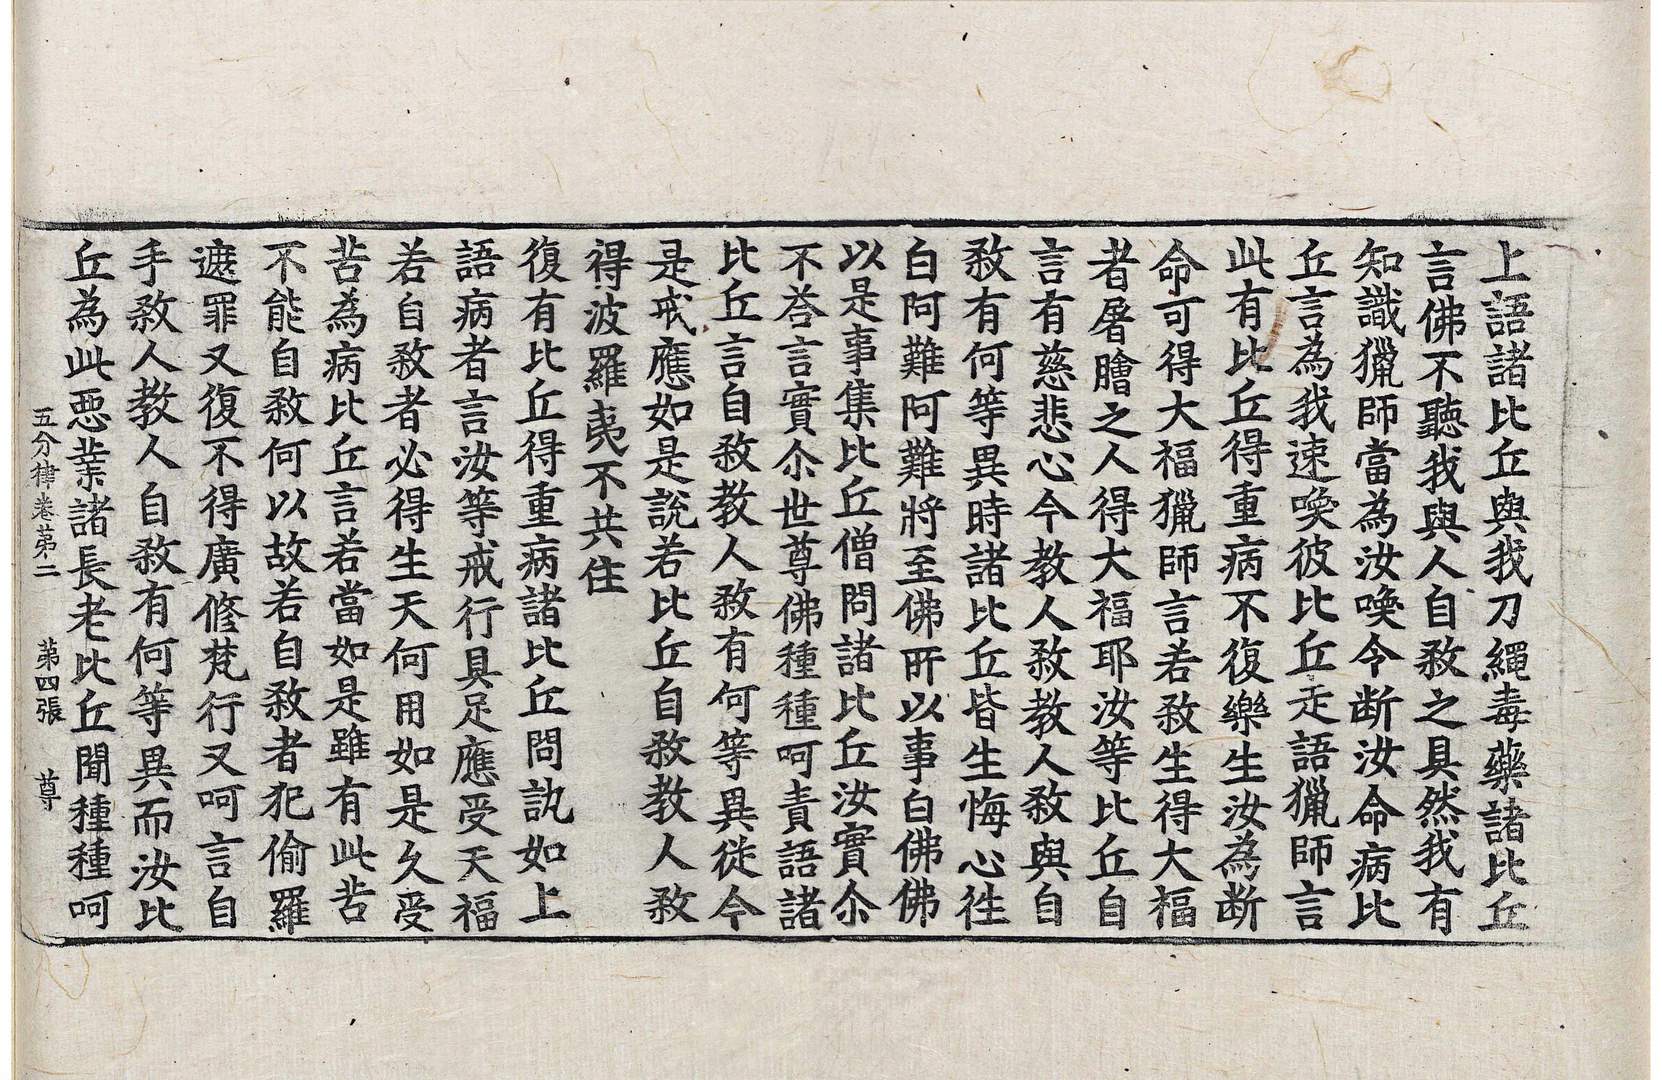 上語諸比丘與我刀繩毒藥諸比丘
言佛不聽我與人自敎之具然我有
知識獵師當為汝喚令断汝命病比
丘言為我速喚彼比丘疋語獵師言
此有比丘得重病不復樂生汝為断
命可得大福獵師言若敎生得大福
者屠膾之人得大福耶汝等比丘自
言有慈悲心今教人敎教人敎與自
敎有何等異時諸比丘皆生悔心往
白阿難阿難將至佛所以事白佛佛
以是事集比丘僧問諸比丘汝實尒
不荅言實尒世尊佛種種呵責語諸
比丘言自敎教人敎有何等異從今
是戒應如是說若比丘自敎教人敎
得波羅夷不共住
復有比丘得重病諸比丘問訊如上
語病者言汝等戒行具足應受天福
若自敎者必得生天何用如是久受
苦為病比丘言若當如是雖有此苦
不能自敎何以故若自敎者犯偷羅
遮罪又復不得廣修梵行又呵言自
手敎人教人自敎有何等異而汝比
丘為此惡業諸長老比丘聞種種呵
五分律卷苐二　苐四張　尊